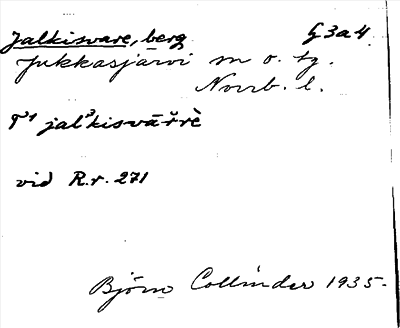 Jalkisvare, berg G3a4
Jukkasjärvi m o. tg.
Norrb. l.
T¹ jalˀkisvāřrè
vid R.r. 271
Björn Collinder 1935.